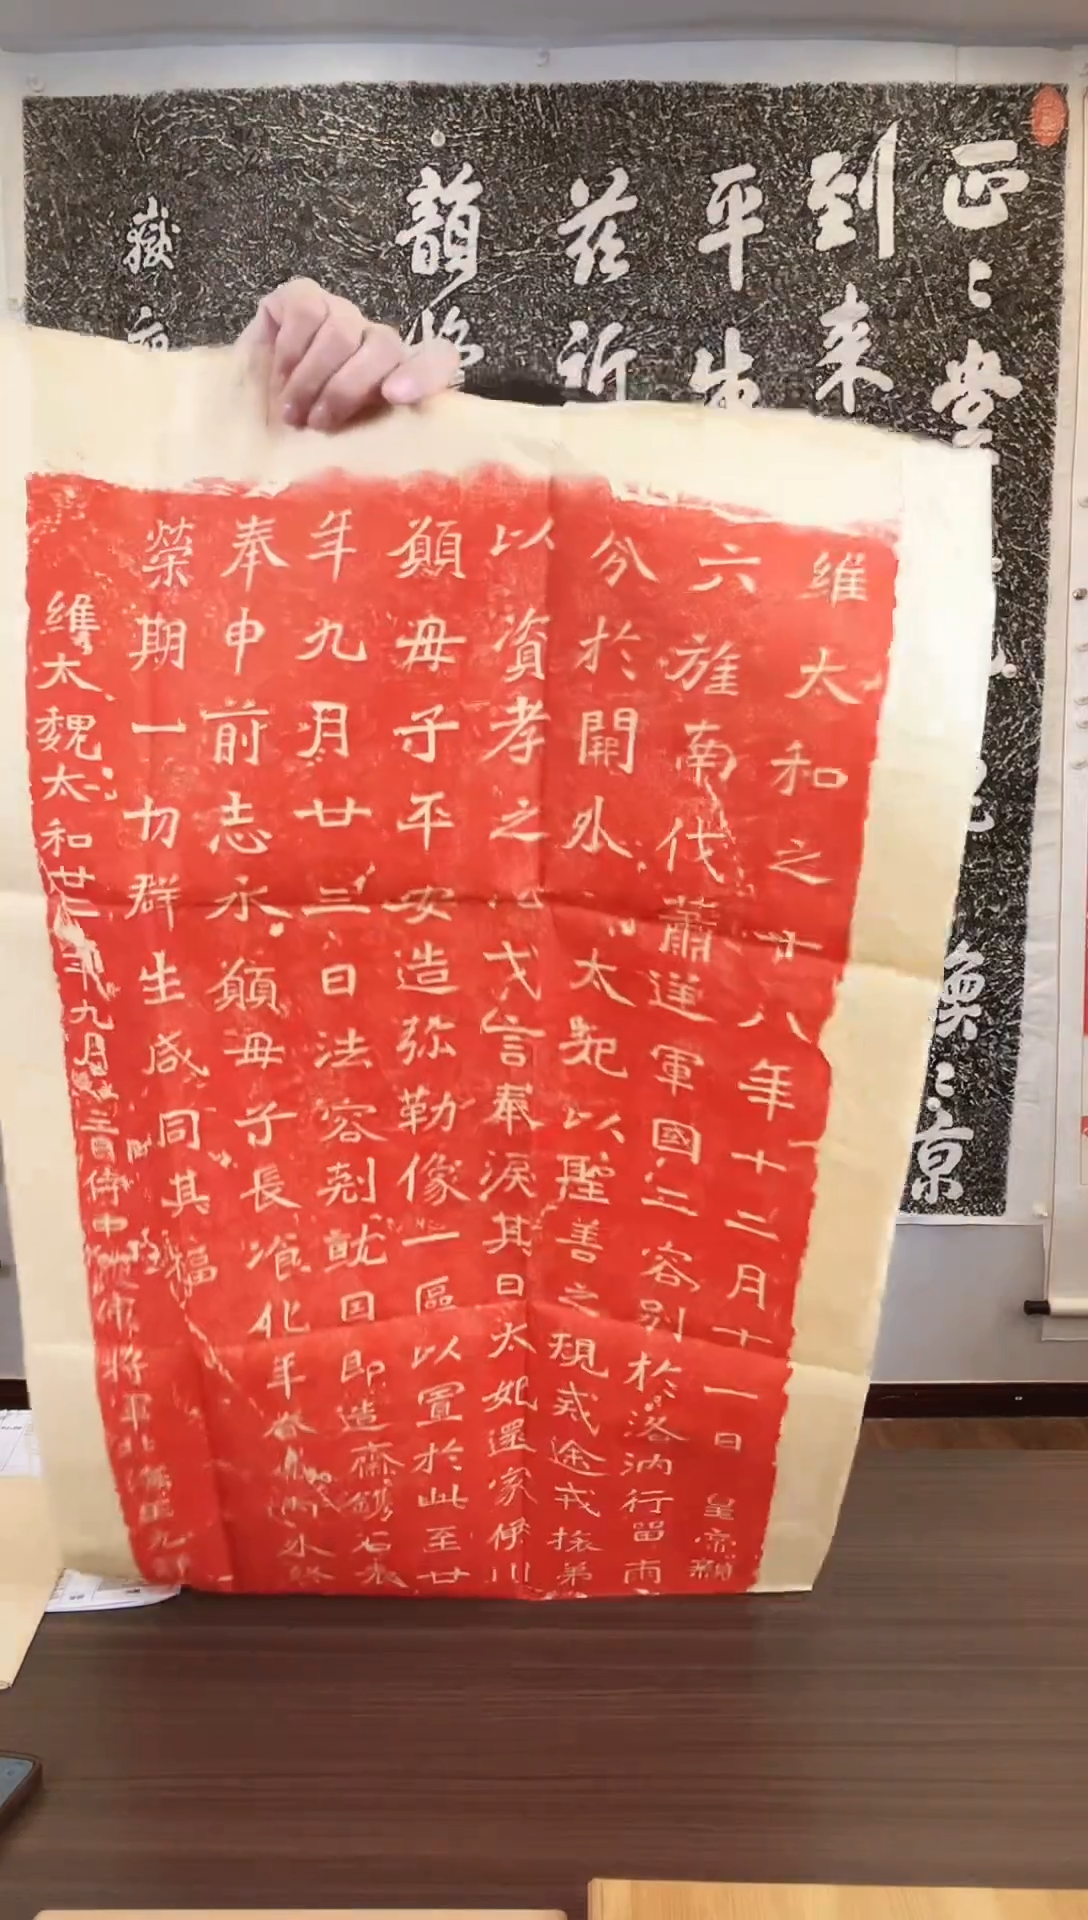 維太和之十八年十二月十一日皇帝親
六旌南伐蕭逆軍國二容別於洛汭行留兩
分於開外太妃以聖善之規戒途戎旅弟
以資孝之心戈言奉淚其日太妃還家伊川
願毋子平安造弥勒像一區以置於此至廿
年九月廿三日法容剋就因即造齋鐫石表
奉申前志永願毋子長飡化年
榮期一切群生咸同其福
維太魏太和廿二年九月廿三日侍中
將軍北
正〻堂
到来
平生
茲
韻
嶽
換〻京